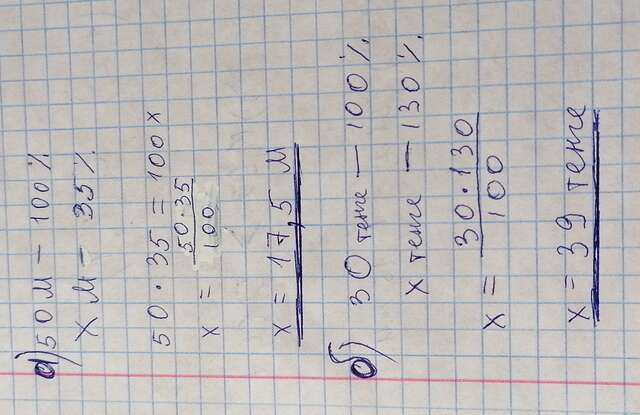 а) 50 м – 100%
х м – 35%
50 · 35 = 100 х
х = 50·35 / 100
х = 17,5 м
б) 30 тенге – 100%
х тенге – 130%
х = 30·130 / 100
х = 39 тенге